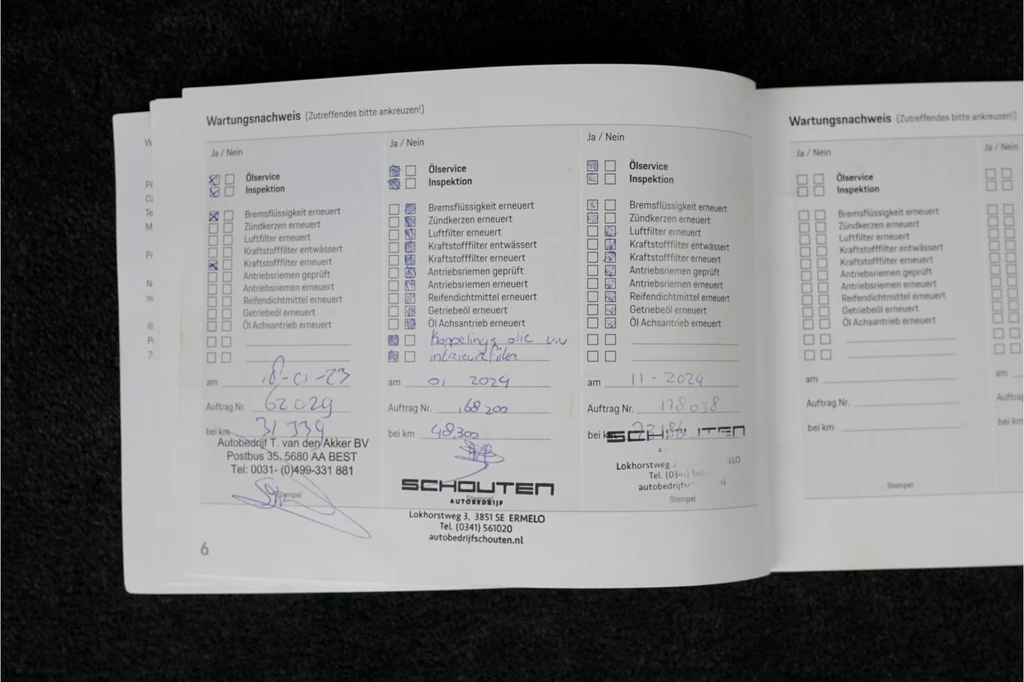 Wartungsnachweis (Zutreffendes bitte ankreuzen!)
Ja / Nein
Ölservice
Inspektion
Bremsflüssigkeit erneuert
Zündkerzen erneuert
Luftfilter erneuert
Kraftstofffilter entwässert
Kraftstofffilter erneuert
Antriebsriemen geprüft
Antriebsriemen erneuert
Reifendichtmittel erneuert
Getriebeöl erneuert
Öl Achsantrieb erneuert
am 18-01-23
Auftrag Nr. 62029
bei km 31339
Autobedrijf T. van den Akker BV
Postbus 35, 5680 AA BEST
Tel: 0031- (0)499-331 881
Stempel
6
Ja / Nein
Ölservice
Inspektion
Bremsflüssigkeit erneuert
Zündkerzen erneuert
Luftfilter erneuert
Kraftstofffilter entwässert
Kraftstofffilter erneuert
Antriebsriemen geprüft
Antriebsriemen erneuert
Reifendichtmittel erneuert
Getriebeöl erneuert
Öl Achsantrieb erneuert
Koppelings olie v.v
interieurfilter
am 01 2024
Auftrag Nr. 168200
bei km 48300
SCHOUTEN
AUTOBEDRIJF
Stempel
Lokhorstweg 3, 3851 SE ERMELO
Tel. (0341) 561020
autobedrijfschouten.nl
Ja / Nein
Ölservice
Inspektion
Bremsflüssigkeit erneuert
Zündkerzen erneuert
Luftfilter erneuert
Kraftstofffilter entwässert
Kraftstofffilter erneuert
Antriebsriemen geprüft
Antriebsriemen erneuert
Reifendichtmittel erneuert
Getriebeöl erneuert
Öl Achsantrieb erneuert
am 11-2024
Auftrag Nr. 178038
bei k
SCHOUTEN
Lokhorstweg
Tel.
Stempel
Wartungsnachweis (Zutreffendes bitte ankreuzen!)
Ja / Nein
Ölservice
Inspektion
Bremsflüssigkeit erneuert
Zündkerzen erneuert
Luftfilter erneuert
Kraftstofffilter entwässert
Kraftstofffilter erneuert
Antriebsriemen geprüft
Antriebsriemen erneuert
Reifendichtmittel erneuert
Getriebeöl erneuert
Öl Achsantrieb erneuert
am
Auftrag Nr.
bei km
Stempel
Ja / Nein
am